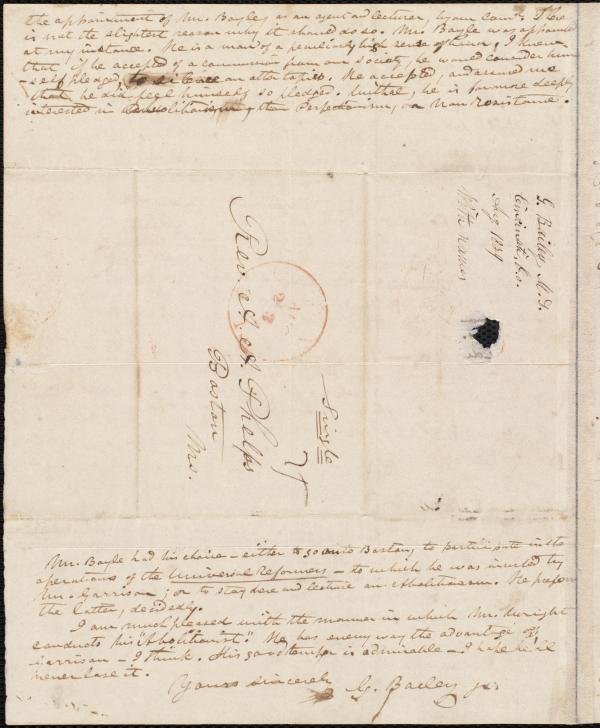 the appointment of Mr. Bayle, as an agent and lecturer, by our Com. There
is not the slightest reason why it should do so. Mr. Bayle was appointed
at my instance. He is a man of a peculiarly high sense of honor, I knew
that if he accepted of a commission from our society, he would consider him
-self pledged to silence on other topics. He accepted, and assured me
that he did feel himself so pledged. Withal, he is far more deeply
interested in Abolitionism, than Perfectionism, or Non resistance.
G. Bailey M.D.
Cincinnati, O.
Aug 1839
With names
Rev. A. A. Phelps
Boston
Ms.
Single
Mr. Bayle had his choice – either to go on to Boston, to participate in the
operations of the Universal Reformers – to which he was invited by
Mr. Garrison; or to stay here and lecture on Abolitionism. He prefers
the latter, decidedly.
I am much pleased with the manner in which Mr. Wright
conducts his "Abolitionist". He has every way the advantage of
Garrison – I think. His good temper is admirable – I hope he'll
never lose it.
Yours sincerely
G. Bailey Jr.